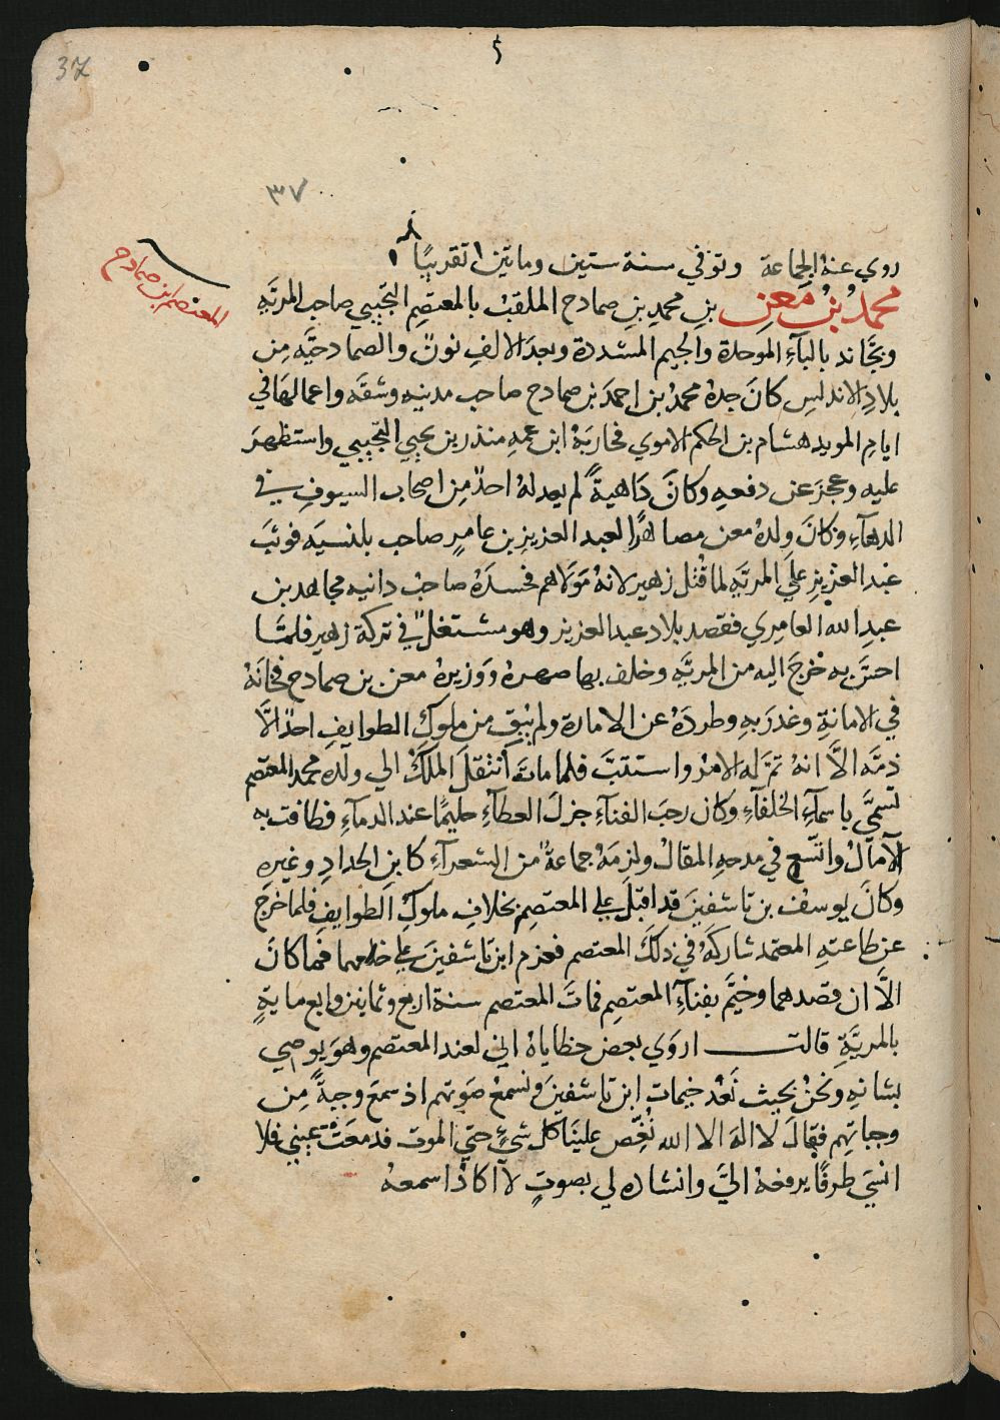 37
٣٧
روي عنه الجماعة وتوفي سنة ستين وماتين تقريبًا
محمد بن معن بن محمد بن صمادح الملقب بالمعتصم التجيبي صاحب المريَّه
المعتصم ابن صمادح
وبجّانه بالبآءِ الموحدة والجيم المشددة وبعدَ الالفِ نونٌ والصمادحيَّه مِن
بلادِ الاندلس كانَ جدهُ محمدُ بن احمدَ بن صمادح صاحب مدينه وشقَه واعمالهَا في
ايامِ المويد هشام بن الحكم الاموي فحاربَهُ ابن عمهِ منذر بن يحيي التجيبي واستظهرَ
عليه وعجزَ عن دفعهِ وكانَ دَاهيةً لم يعدلهُ احدٌ مِن اصحاب السيوفِ في
الدهآءِ وكانَ ولدهُ معن مصاهرًا لعبد العزيز بن عامرٍ صاحب بلنسيَه فوثبَ
عبد العزيزِ علَي المريَّهِ لما قُتل زهير لانهُ مَولَاهم فحسدَهُ صاحبُ دانيه مجاهد بن
عبدِ الله العامري فقصد بلاد عبد العزيز وهو مشتغلٌ في تركة زهير فلمَّا
احسَّ به خرجَ اليه من المريَّهِ وخلف بها صهرهُ ووَزيرهُ معن بن صمادح فخانَهُ
في الامانةِ وغدرَ بهِ وطردَهُ عن الامارة ولم يبْق من ملوكِ الطوايفِ احدٌ الَّا
ذمَّه الَّا انهُ تمَّ له الامرُ واستتبَّ فلما ماتَ اَنتقلَ الملكُ الي ولده محمد المعتصم
تسمَّي باسمآءِ الخلفآءِ وكان رحبَ الفنآءِ جزلَ العطآءِ حليمًا عند الدمآءِ فطافت به
الآمالُ واتّسع في مدحهِ المقالُ ولزمَهُ جماعةٌ من الشعرآءِ كابنِ الحدادِ وغيرهِ
وكانَ يوسف بن تاشفينَ قد اقبلَ علي المعتصمِ بخلافِ ملوكِ الطوايفِ فلما خرجَ
عن طاعتهِ المعتمد شاركَهُ في ذلكَ المعتصم فعزم ابن تاشفينَ علي خلعهما فما كانَ
الَّا ان قصدهما وخيَّم بفنآءِ المعتصِم فماتَ المعتصم سنة اربع وثمانين واربع مايةٍ
بالمريَّةِ قالت اروَي بعض حظاياهُ اني لعند المعتصم وهوَ يوصي
بشانهِ ونحنُ بحيث نَعُد خيمات ابن تاشفينَ ونسمعُ صَوتهم اذ سمعَ وجبةً مِن
وجباتِهِم فقالَ لا الهَ الا الله نُغّص علينَا كل شيءٍ حتي الموت فدمعَتْ عيني فلا
انسَي طرفًا يرفعهُ اليَّ وانشاده لي بصوتٍ لا اكادُ اسمعهُ